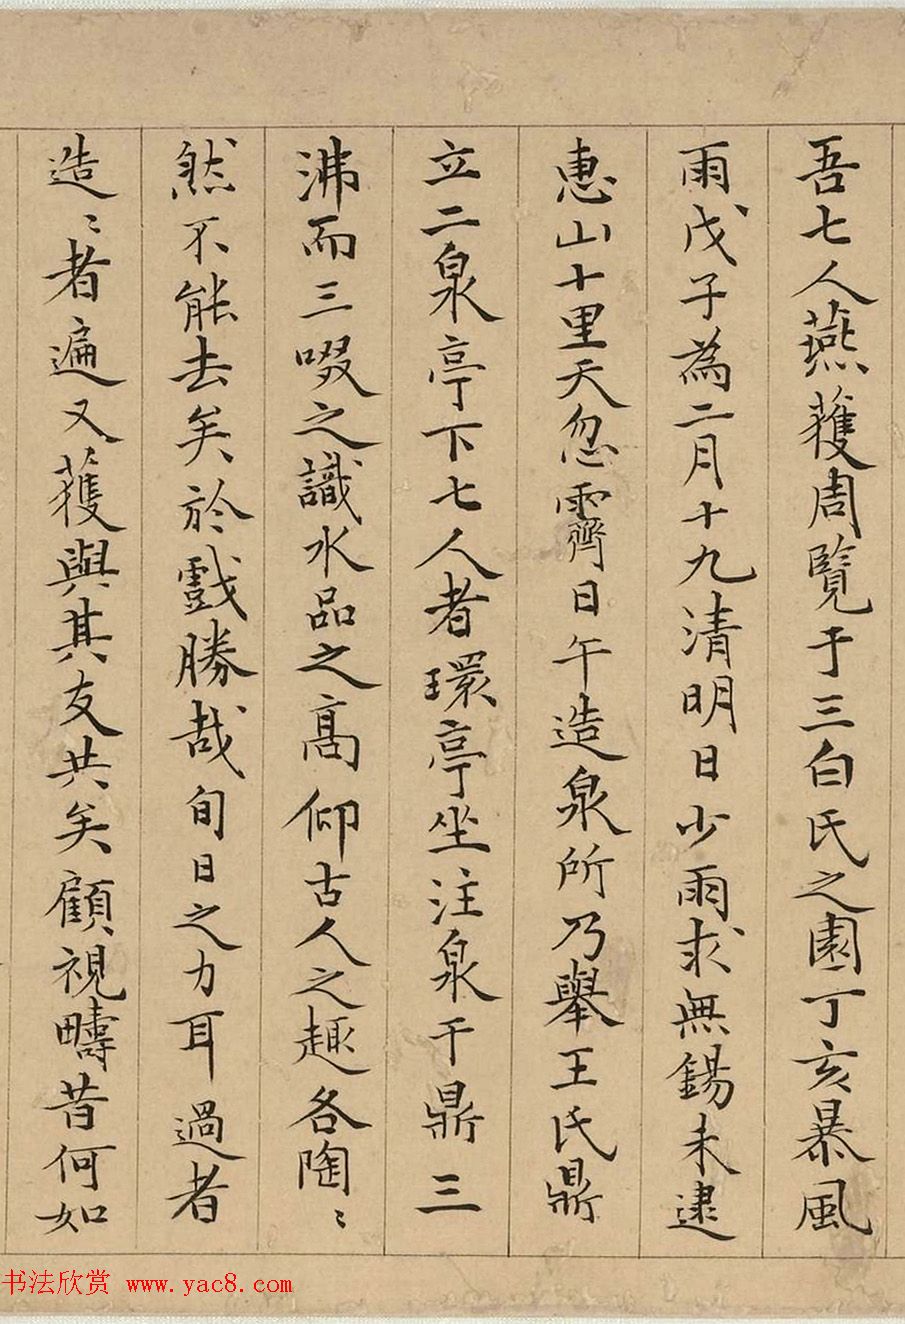 吾七人燕獲周覽于三白氏之園丁亥暴風
雨戊子為二月十九清明日少雨求無錫未逮
惠山十里天忽霽日午造泉所乃舉王氏鼎
立二泉亭下七人者環亭坐注泉于鼎三
沸而三啜之識水品之高仰古人之趣各陶〻
然不能去矣於戲勝哉旬日之力耳過者
造〻者遍又獲與其友共矣顧視疇昔何如
书法欣赏 www.yac8.com